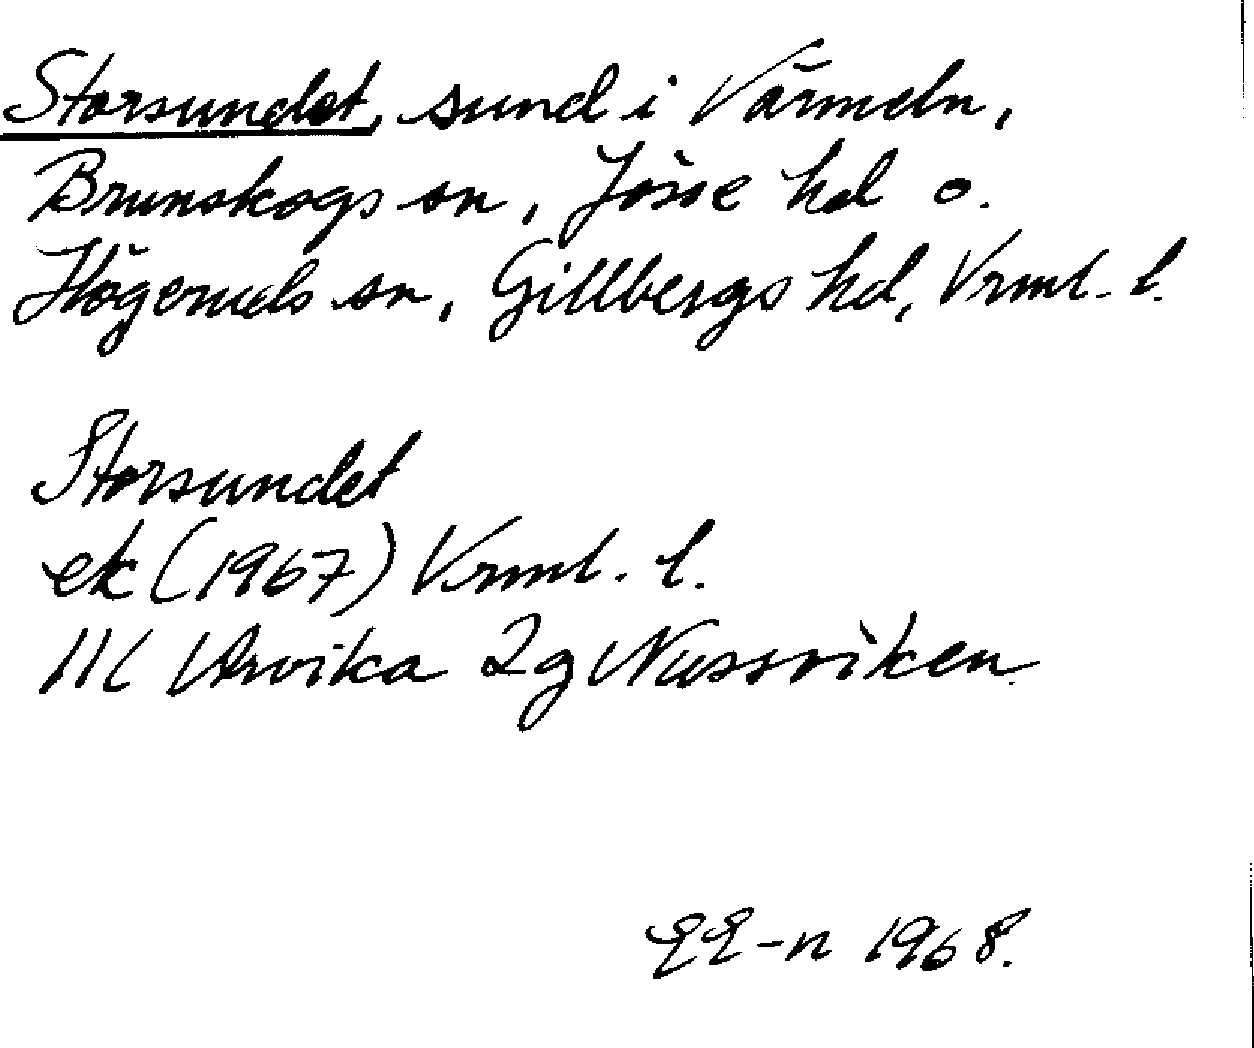 Storsundet, sund i Värmeln,
Brunskogs sn, Jösse hd o.
Högeruds sn, Gillbergs hd, Vrml. l.
Storsundet
ek (1967) Vrml. l.
11C Arvika 2g Nussviken
EE-n 1968.